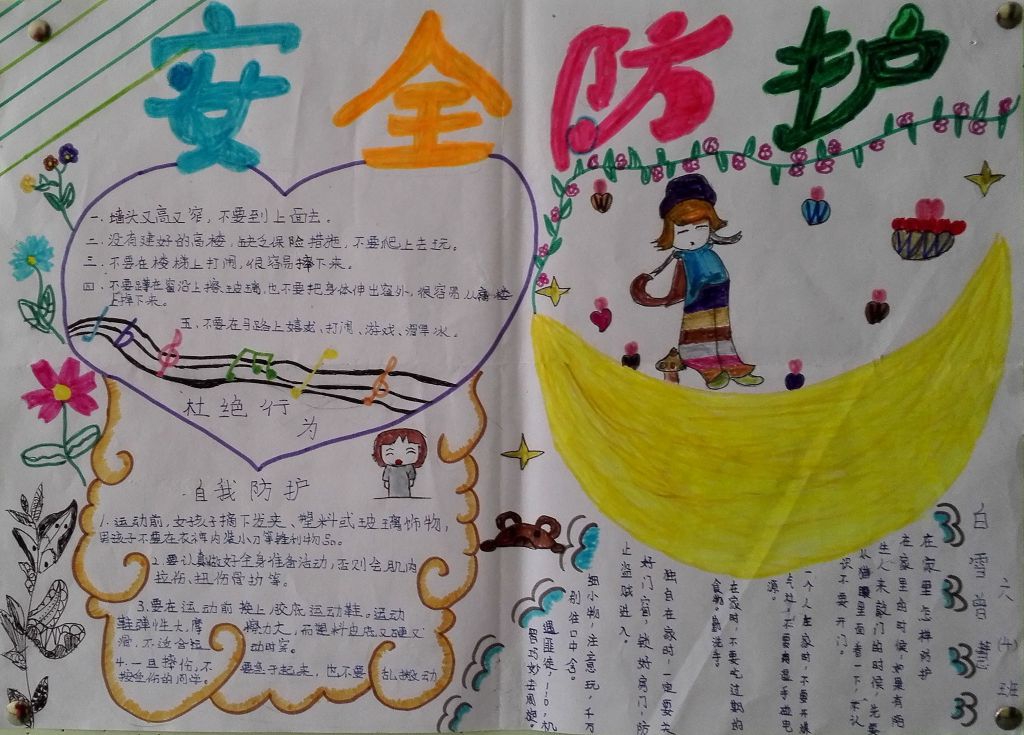 安全防护
一.墙头又高又窄,不要到上面去。
二.没有建好的高楼,缺乏保险措施,不要爬上去玩。
三.不要在楼梯上打闹,很容易摔下来。
四.不要蹲在窗沿上擦玻璃,也不要把身体伸出窗外,很容易从高楼
上摔下来。
五.不要在马路上嬉戏、打闹、游戏、滑旱冰。
杜绝行
为
自我防护
1.运动前,女孩子摘下发夹、塑料或玻璃饰物,
男孩子不要在衣裤内装小刀等锋利物品。
2.要认真做好全身准备活动,否则会肌肉
拉伤、扭伤骨折等。
3.要在运动前换上胶底运动鞋。运动
鞋弹性大摩擦力大,而塑料皮底又硬又
滑,不适合运动时穿。
4.一旦摔伤,不要急于起来,也不要乱搬动
按受伤的同学。
六(4)班
白雪曾慧
在家里怎样防护
在家里的时候,如果有陌
生人来敲门的时候,先要
从猫眼里面看一下,不认
识不要开门。
一个人在家时,不要开煤
气灶,不要用湿手碰电
源。
在家时,不要吃过期的
食物,勤洗手。
独自在家时,一定要关
好门窗,锁好房门,防
止盗贼进入。
细小物,注意玩,千万
别往口中含。
遇匪徒,110,机
智巧妙去周旋。